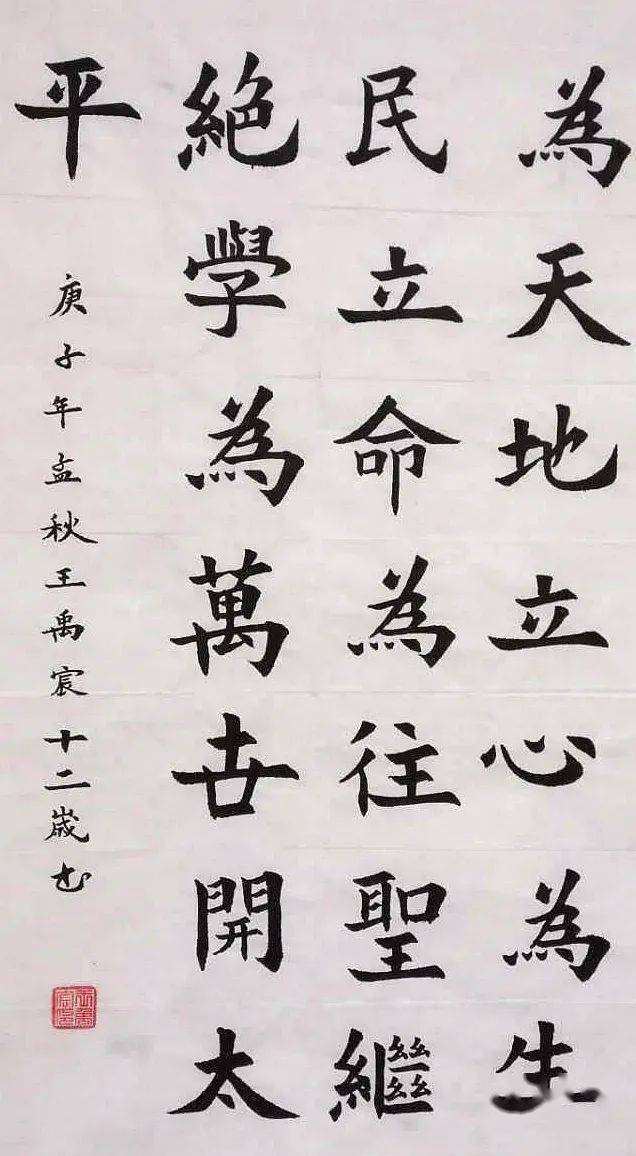 為天地立心為生
民立命為往聖繼
絕學為萬世開太
平
庚子年孟秋王禹宸十二歲书